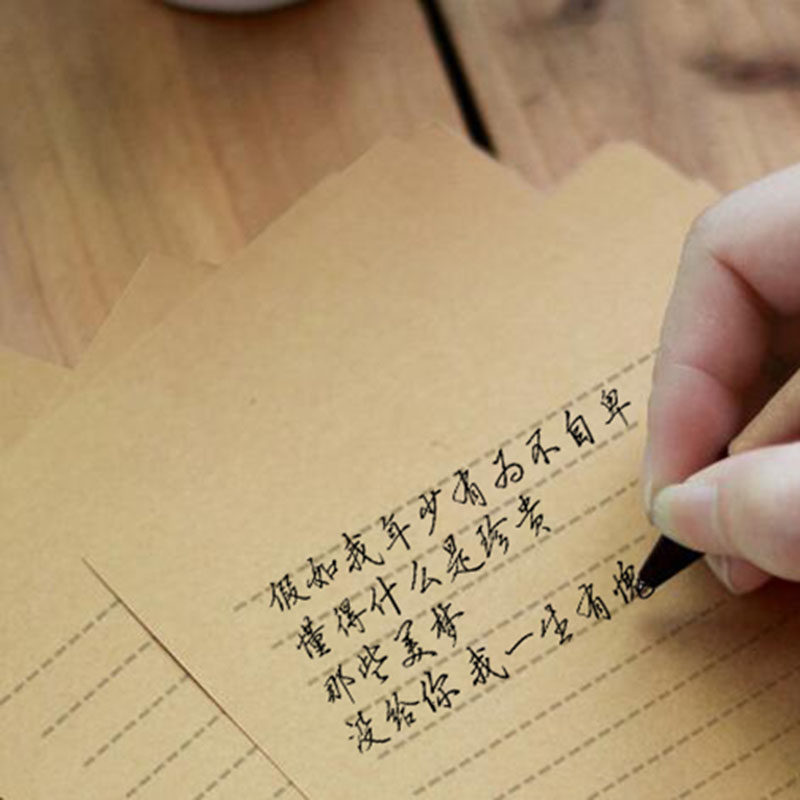 假如我年少有为不自卑
懂得什么是珍贵
那些美梦
没给你我一生有愧